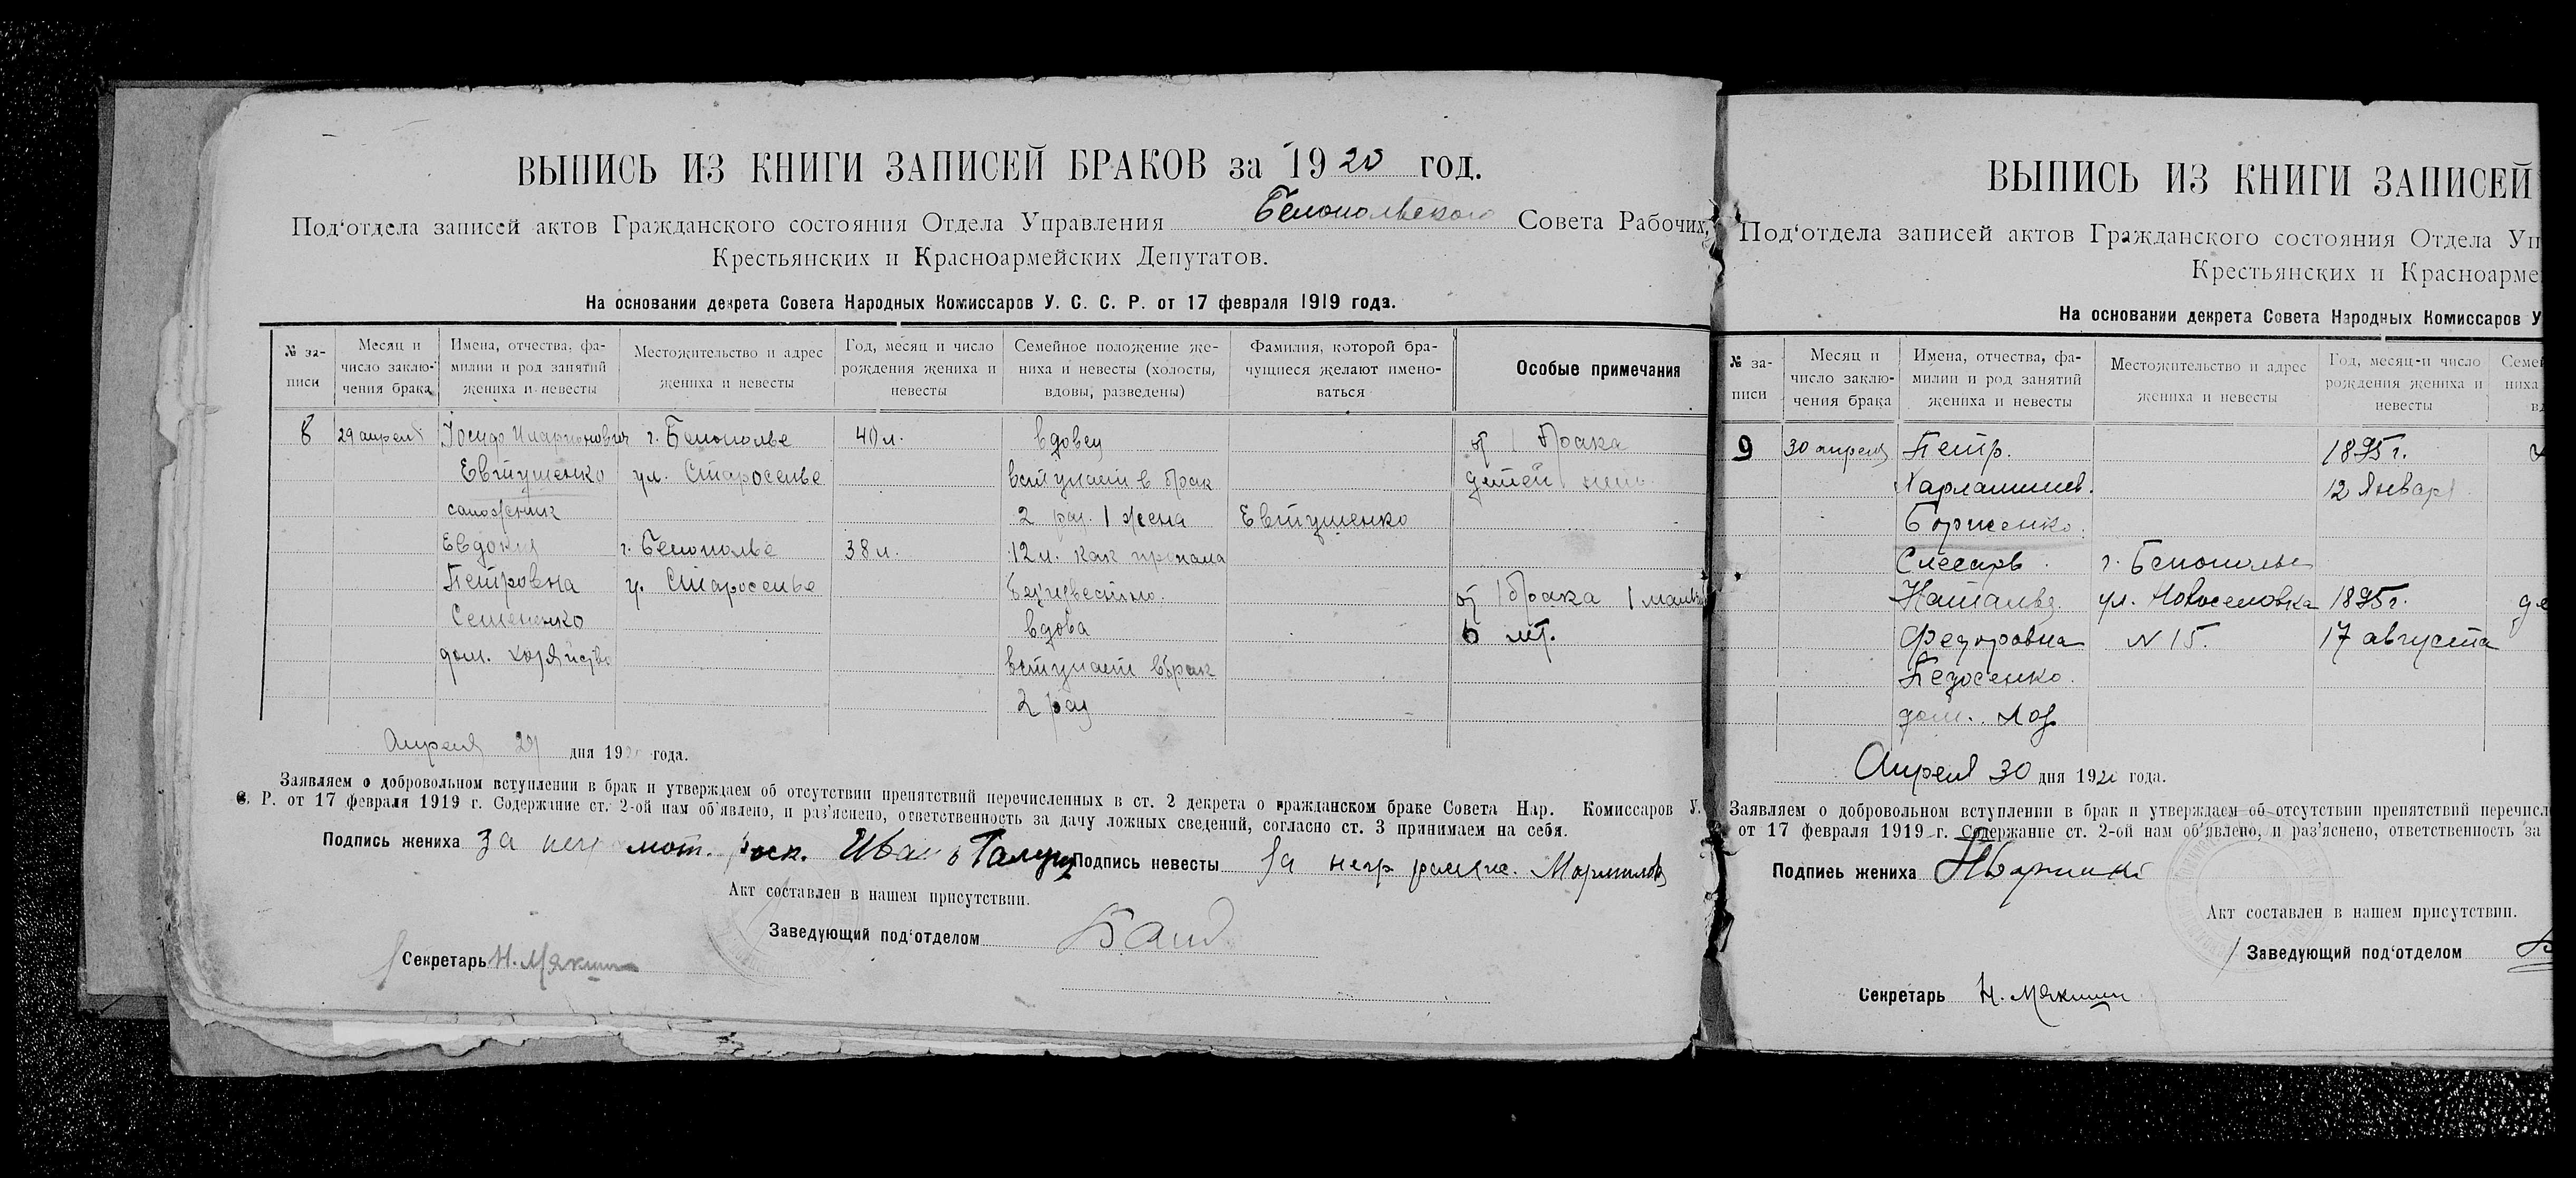 ВЫПИСЬ ИЗ КНИГИ ЗАПИСЕЙ БРАКОВ за 1920 год.
Под‘отдела записей актов Гражданского состояния Отдела Управления Белопольского Совета Рабочих,
Крестьянских и Красноармейских Депутатов.
На основании декрета Совета Народных Комиссаров У. С. С. Р. от 17 февраля 1919 года.
№ за-
писи
Месяц и
число заклю-
чения брака
Имена, отчества, фа-
милии и род занятий
жениха и невесты
Местожительство и адрес
жениха и невесты
Год, месяц и число
рождения жениха и
невесты
Семейное положение же-
ниха и невесты (холосты,
вдовы, разведены)
Фамилия, которой бра-
чущиеся желают имено-
ваться
Особые примечания
8 29 апреля Іосиф Иларионович г. Белополье 40 л. вдовец от 1 брака
Евтушенко ул. Староселье вступает в брак детей нет
сапожник 2 раз. 1 жена Евтушенко
Евдокия г. Белополье 38 л. 12 л. как пропала
Петровна у. Староселье безизвестно. от 1 брака 1
Семененко вдова 6 лет.
дом. хозяйство вступает в брак
2 раз
Апреля 29 дня 1920 года.
Заявляем о добровольном вступлении в брак и утверждаем об отсутствии препятствий перечисленных в ст. 2 декрета о гражданском браке Совета Нар. Комиссаров У.
С. Р. от 17 февраля 1919 г. Содержание ст. 2-ой нам об‘явлено, и раз‘яснено, ответственность за дачу ложных сведений, согласно ст. 3 принимаем на себя.
Подпись жениха За негр Иван Подпись невесты За негр
Акт составлен в нашем присутствии.
Заведующий под‘отделом
Секретарь Н. Мякшин
ВЫПИСЬ ИЗ КНИГИ ЗАПИСЕЙ
Под‘отдела записей актов Гражданского состояния Отдела Уп
Крестьянских и Красноарме
На основании декрета Совета Народных Комиссаров У
№ за-
писи
Месяц и
число заклю-
чения брака
Имена, отчества, фа-
милии и род занятий
жениха и невесты
Местожительство и адрес
жениха и невесты
Год, месяц и число
рождения жениха и
невесты
Семей
ниха
вд
9 30 апреля Петр. 1895 г.
Харлампиев. 12 Января
Борисенко.
Слесарь. г. Белополье
Наталья ул. Новоселовка 1895 г. де
Федоровна № 15. 17 августа
Федосенко.
дом. хоз
Апреля 30 дня 1920 года.
Заявляем о добровольном вступлении в брак и утверждаем об отсутствии препятствий перечисл
от 17 февраля 1919 г. Содержание ст. 2-ой нам об‘явлено, и раз‘яснено, ответственность за
Подпись жениха
Акт составлен в нашем присутствии.
Заведующий под‘отделом
Секретарь Н. Мякшин